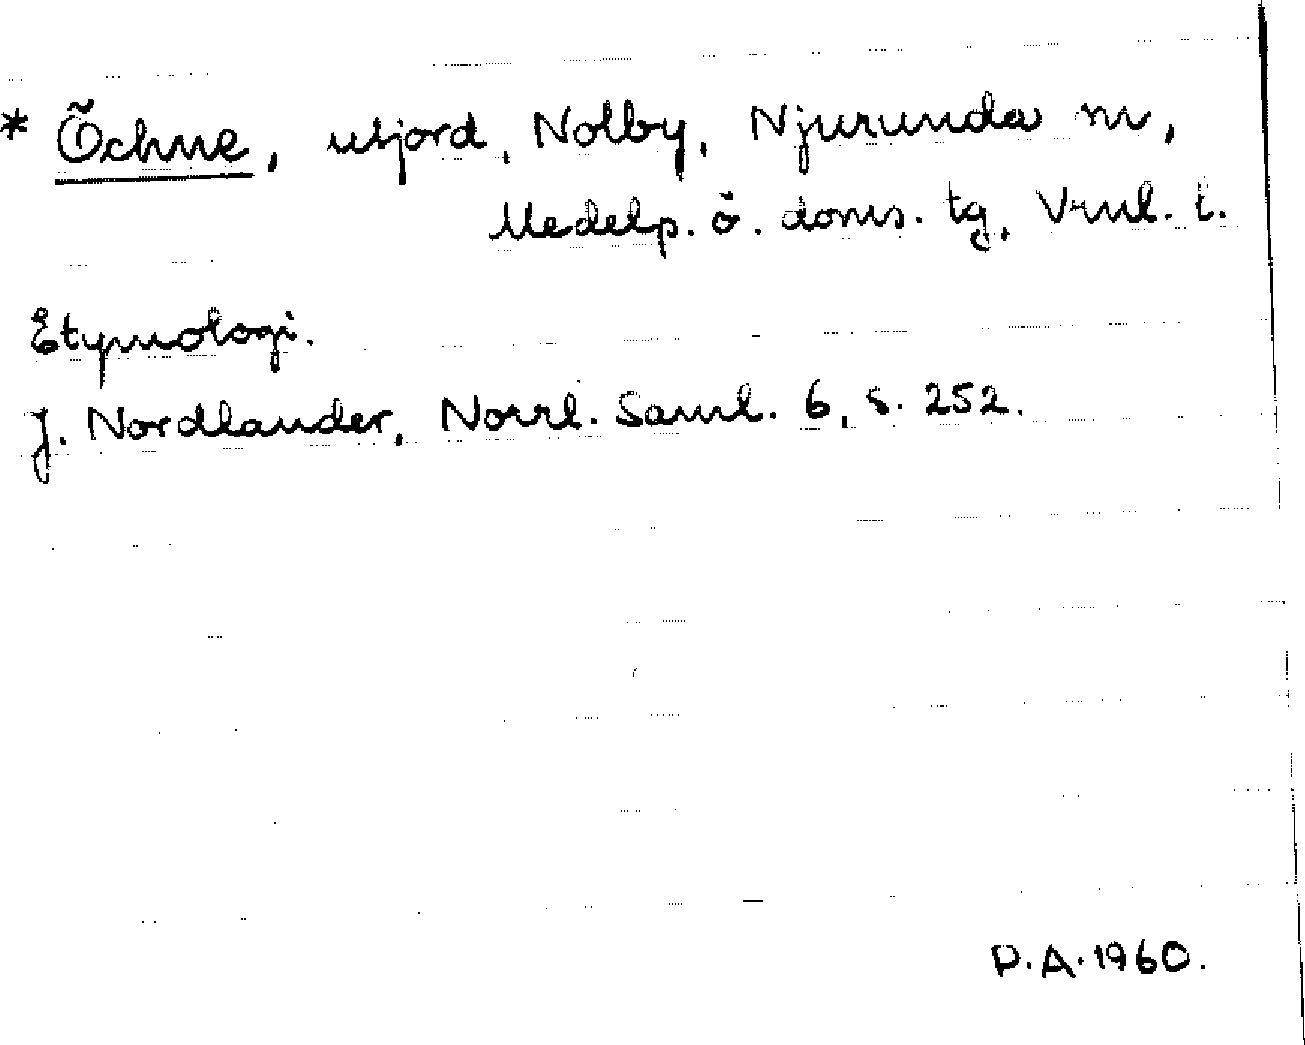 * Õchne, utjord, Nolby, Njurunda sn,
Medelp. ö. doms. tg, Vrnl. l.
Etymologi.
J. Nordlander, Norrl. Saml. 6, s. 252.
P.A. 1960.